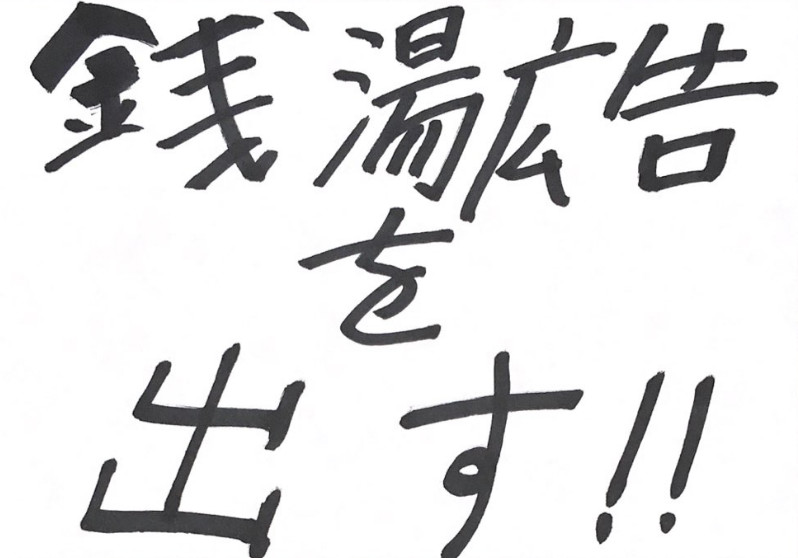 銭湯広告
を
出す!!